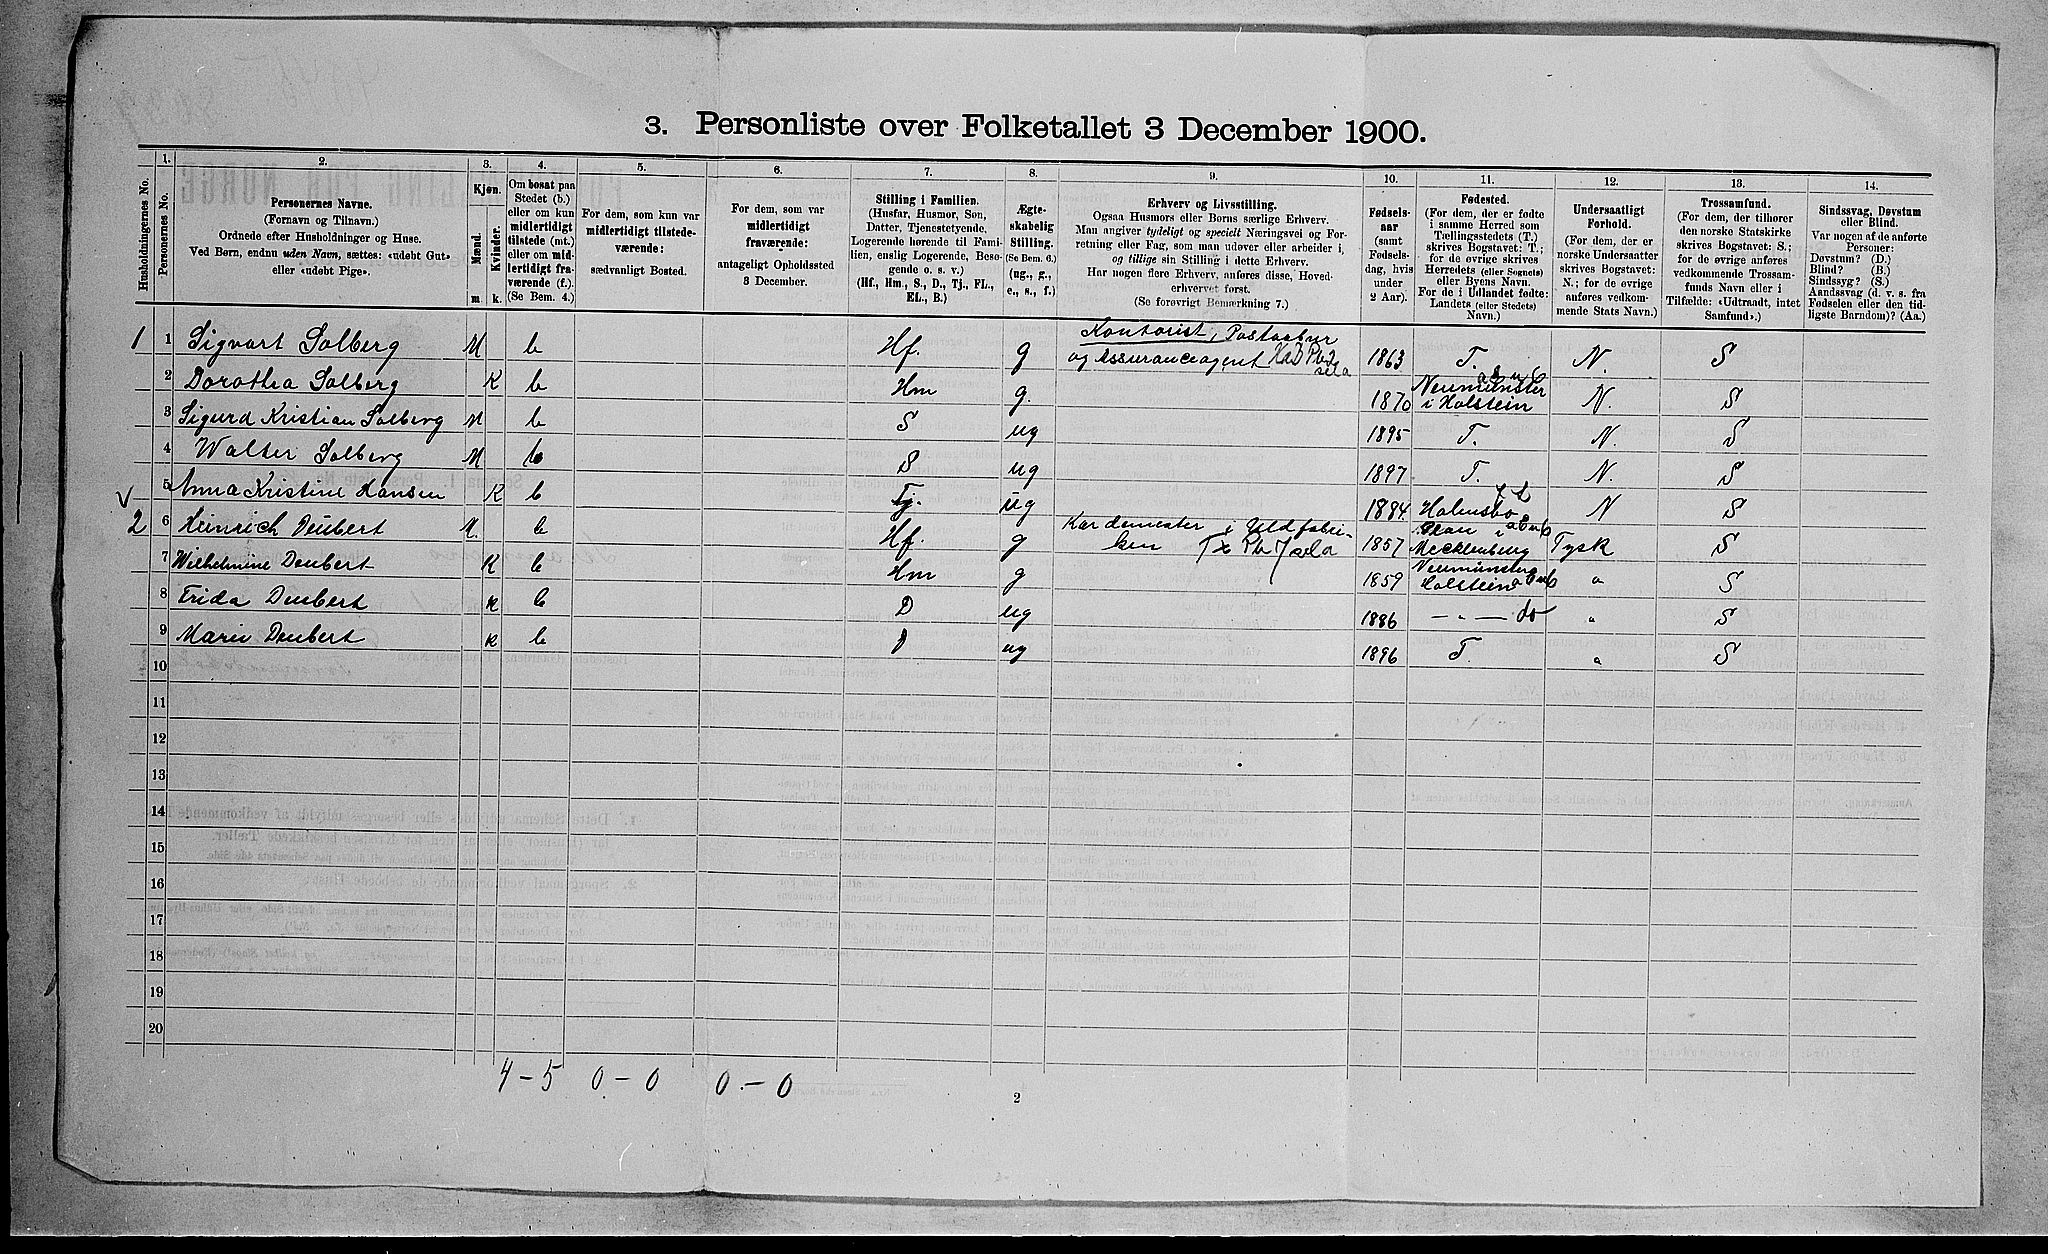 3. Personliste over Folketallet 3 December 1900.
Husholdningernes No.
1. Personernes No.
2. Personernes Navne.
(Fornavn og Tilnavn.)
Ordnede efter Husholdninger og Huse.
Ved Børn, endnu uden Navn, sættes: «udøbt Gut»
eller «udøbt Pige».
3. Kjøn.
Mænd. Kvinder.
m. k.
4. Om bosat paa
Stedet (b.)
eller om kun
midlertidigt
tilstede (mt.)
eller om mid-
lertidigt fra-
værende (f.).
(Se Bem. 4.)
5. For dem, som kun var
midlertidigt tilstede-
værende:
sædvanligt Bosted.
6. For dem, som var
midlertidigt
fraværende:
antageligt Opholdssted
3 December.
7. Stilling i Familien.
(Husfar, Husmor, Søn,
Datter, Tjenestetyende,
Logerende hørende til Fami-
lien, enslig Logerende, Besø-
gende o. s. v.)
(Hf., Hm., S., D., Tj., FL.,
EL., B.)
8. Ægte-
skabelig
Stilling.
(Se Bem. 6.)
(ug., g.,
e., s., f.)
9. Erhverv og Livsstilling.
Ogsaa Husmors eller Børns særlige Erhverv.
Man angiver tydeligt og specielt Næringsvei og For-
retning eller Fag, som man udøver eller arbeider i,
og tillige sin Stilling i dette Erhverv.
Har nogen flere Erhverv, anføres disse, Hoved-
erhvervet først.
(Se forøvrigt Bemærkning 7.)
10. Fødsels-
aar
(samt
Fødsels-
dag, hvis
under
2 Aar).
11. Fødested.
(For dem, der er fødte
i samme Herred som
Tællingsstedets (T.)
skrives Bogstavet: T.;
for de øvrige skrives
Herredets (eller Sognets)
eller Byens Navn.
For de i Udlandet fødte:
Landets (eller Stedets)
Navn.)
12. Undersaatligt
Forhold.
(For dem, der er
norske Undersaatter
skrives Bogstavet:
N.; for de øvrige
anføres vedkom-
mende Stats Navn.)
13. Trossamfund.
(For dem, der tilhører
den norske Statskirke
skrives Bogstavet: S.;
for de øvrige anføres
vedkommende Trossam-
funds Navn eller i
Tilfælde: «Udtraadt, intet
Samfund».)
14. Sindssvag, Døvstum
eller Blind.
Var nogen af de anførte
Personer:
Døvstum? (D.)
Blind? (B.)
Sindssyg? (S.)
Aandssvag (d. v. s. fra
Fødselen eller den tid-
ligste Barndom)? (Aa.)
1 1 Sigvart Solberg M b Hf. g Kontorist, Postaabner
og Assuranceagent 1863 T. N. S
2 Dorothea Solberg K b Hm g. 1870 Neumünster
i Holstein N. S
3 Sigurd Kristian Solberg M b S ug 1895 T. N. S
4 Walter Solberg M b S ug 1897 T. N. S
5 Anna Kristine Hansen K b Tj. ug 1884 Holmsbo N S
2 6 Heinrich Deubert M. b Hf. g Kardemester i Uldfabri-
ken 1857 i
Mecklenburg Tysk S
7 Wilhelmine Deubert K b Hm g 1859 Neumünster
Holstein " S
8 Frida Deubert K b D ug 1886 — " — do " S
9 Marie Deubert K b D ug 1896 T. " S
10
11
12
13
14
15
16
17
18
19
20
4 - 5 0 - 0 0 - 0
2